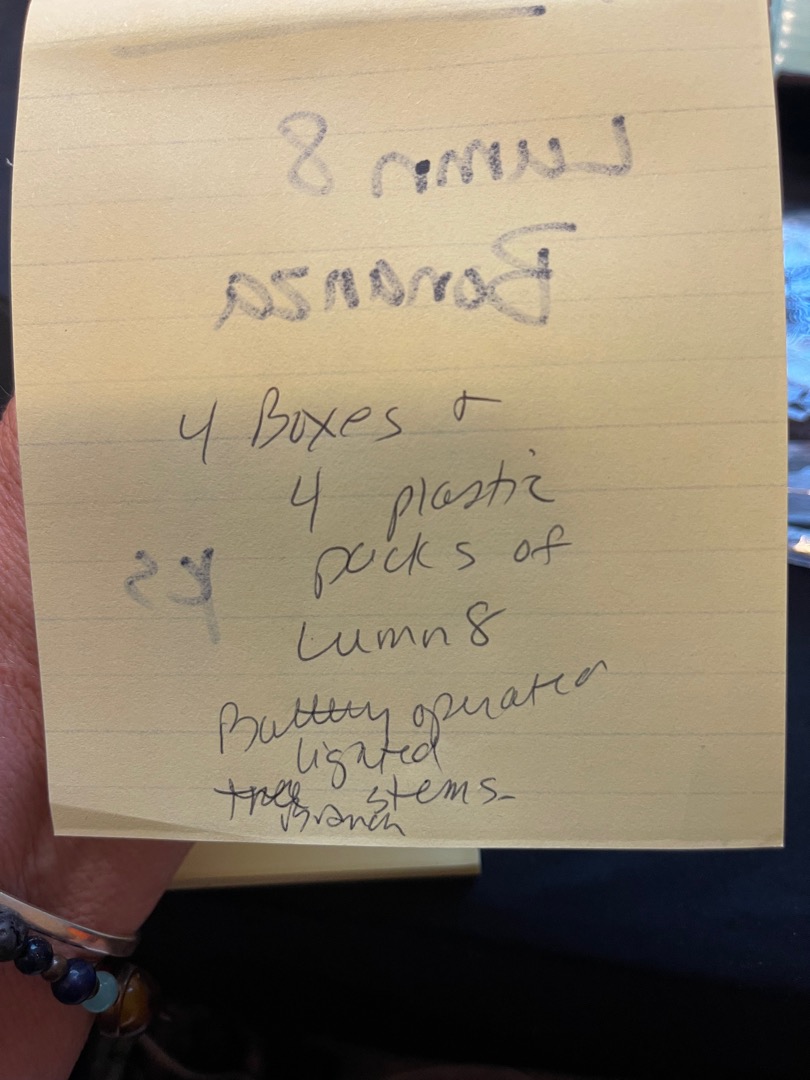 Lumn 8
Bonanza
4 Boxes +
4 plastic
packs of
Lumn8
Battery operated
lighted
tree stems-
Branch